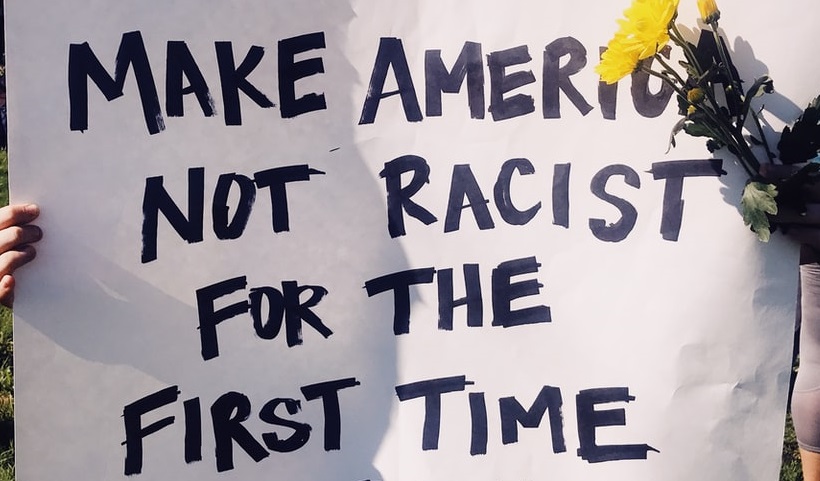 MAKE AMERICA
NOT RACIST
FOR THE
FIRST TIME